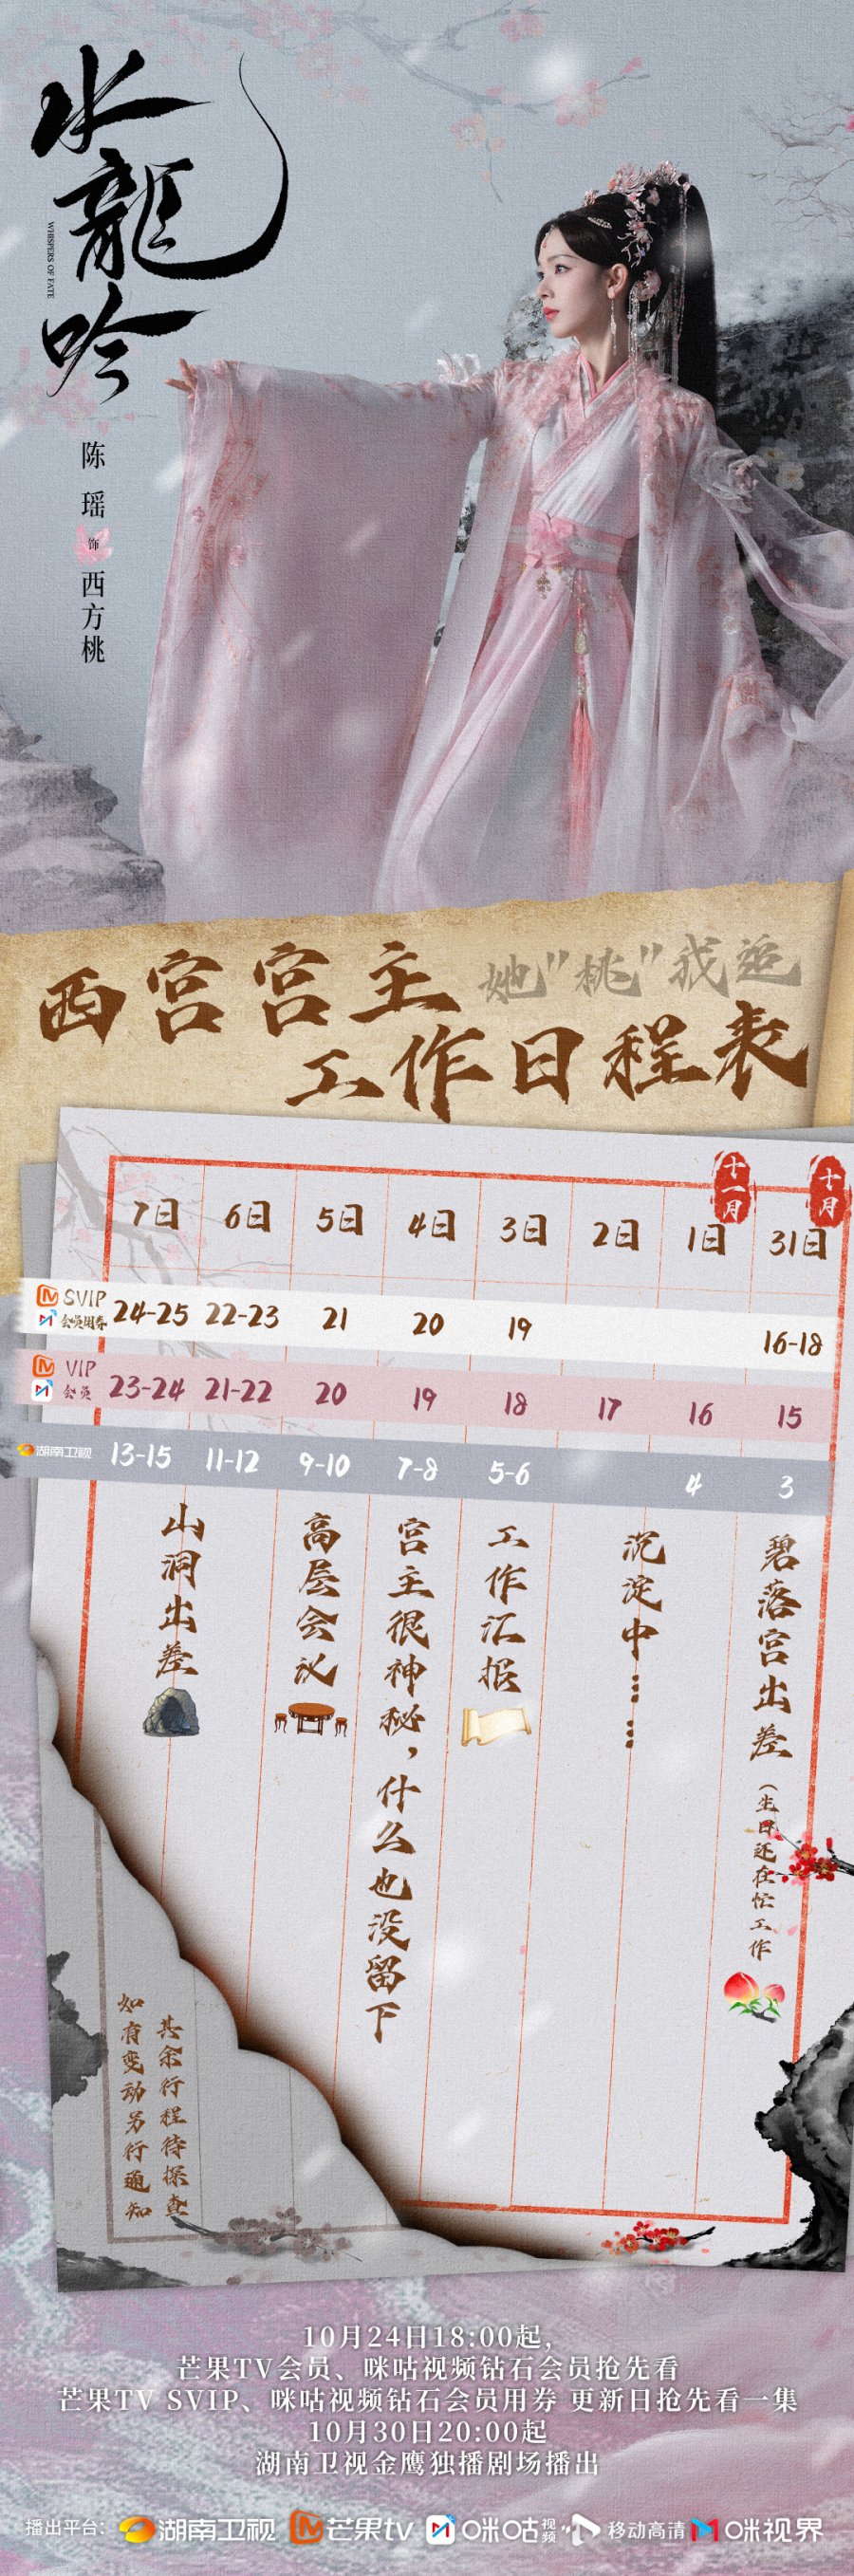 水龍吟
WHISPERS OF FATE
陈瑶
饰
西方桃
西宫宫主
她"桃"我追
工作日程表
十一月
十月
7日 6日 5日 4日 3日 2日 1日 31日
SVIP
会员用券
24-25 22-23 21 20 19 16-18
VIP
会员
23-24 21-22 20 19 18 17 16 15
湖南卫视
13-15 11-12 9-10 7-8 5-6 4 3
碧落宫出差
(生日还在忙工作
沉淀中……
工作汇报
宫主很神秘，什么也没留下
高层会议
山洞出差
其余行程待探查
如有变动另行通知
10月24日18:00起,
芒果TV会员、咪咕视频钻石会员抢先看
芒果TV SVIP、咪咕视频钻石会员用券 更新日抢先看一集
10月30日20:00起
湖南卫视金鹰独播剧场播出
播出平台: 湖南卫视 芒果tv 咪咕视频 移动高清 咪视界